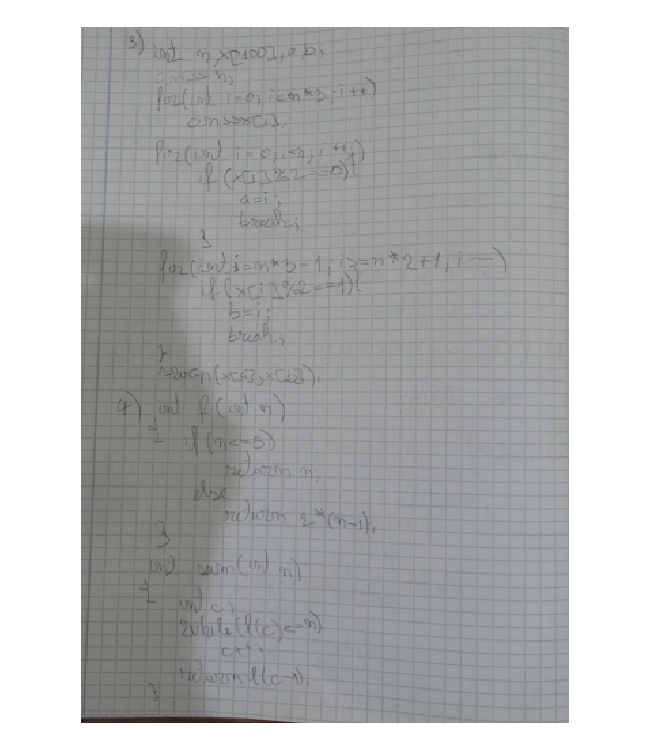 3) int n, x[100], a, b;
cin>>n;
for(int i=0; i<n*3; i++)
cin>>x[i];
for(int i=0; i<n; i++)
if(x[i]%2==0){
a=i;
break;
}
for(int i=n*3-1; i>=n*2+1; i--)
if(x[i]%2==1){
b=i;
break;
}
swap(x[a], x[b]);
4) int f(int n)
{ if(n<=5)
return n;
else
return 2*(n-1);
}
int num(int n)
{ int c;
while(f(c)<=n)
c++;
return f(c-1);
}